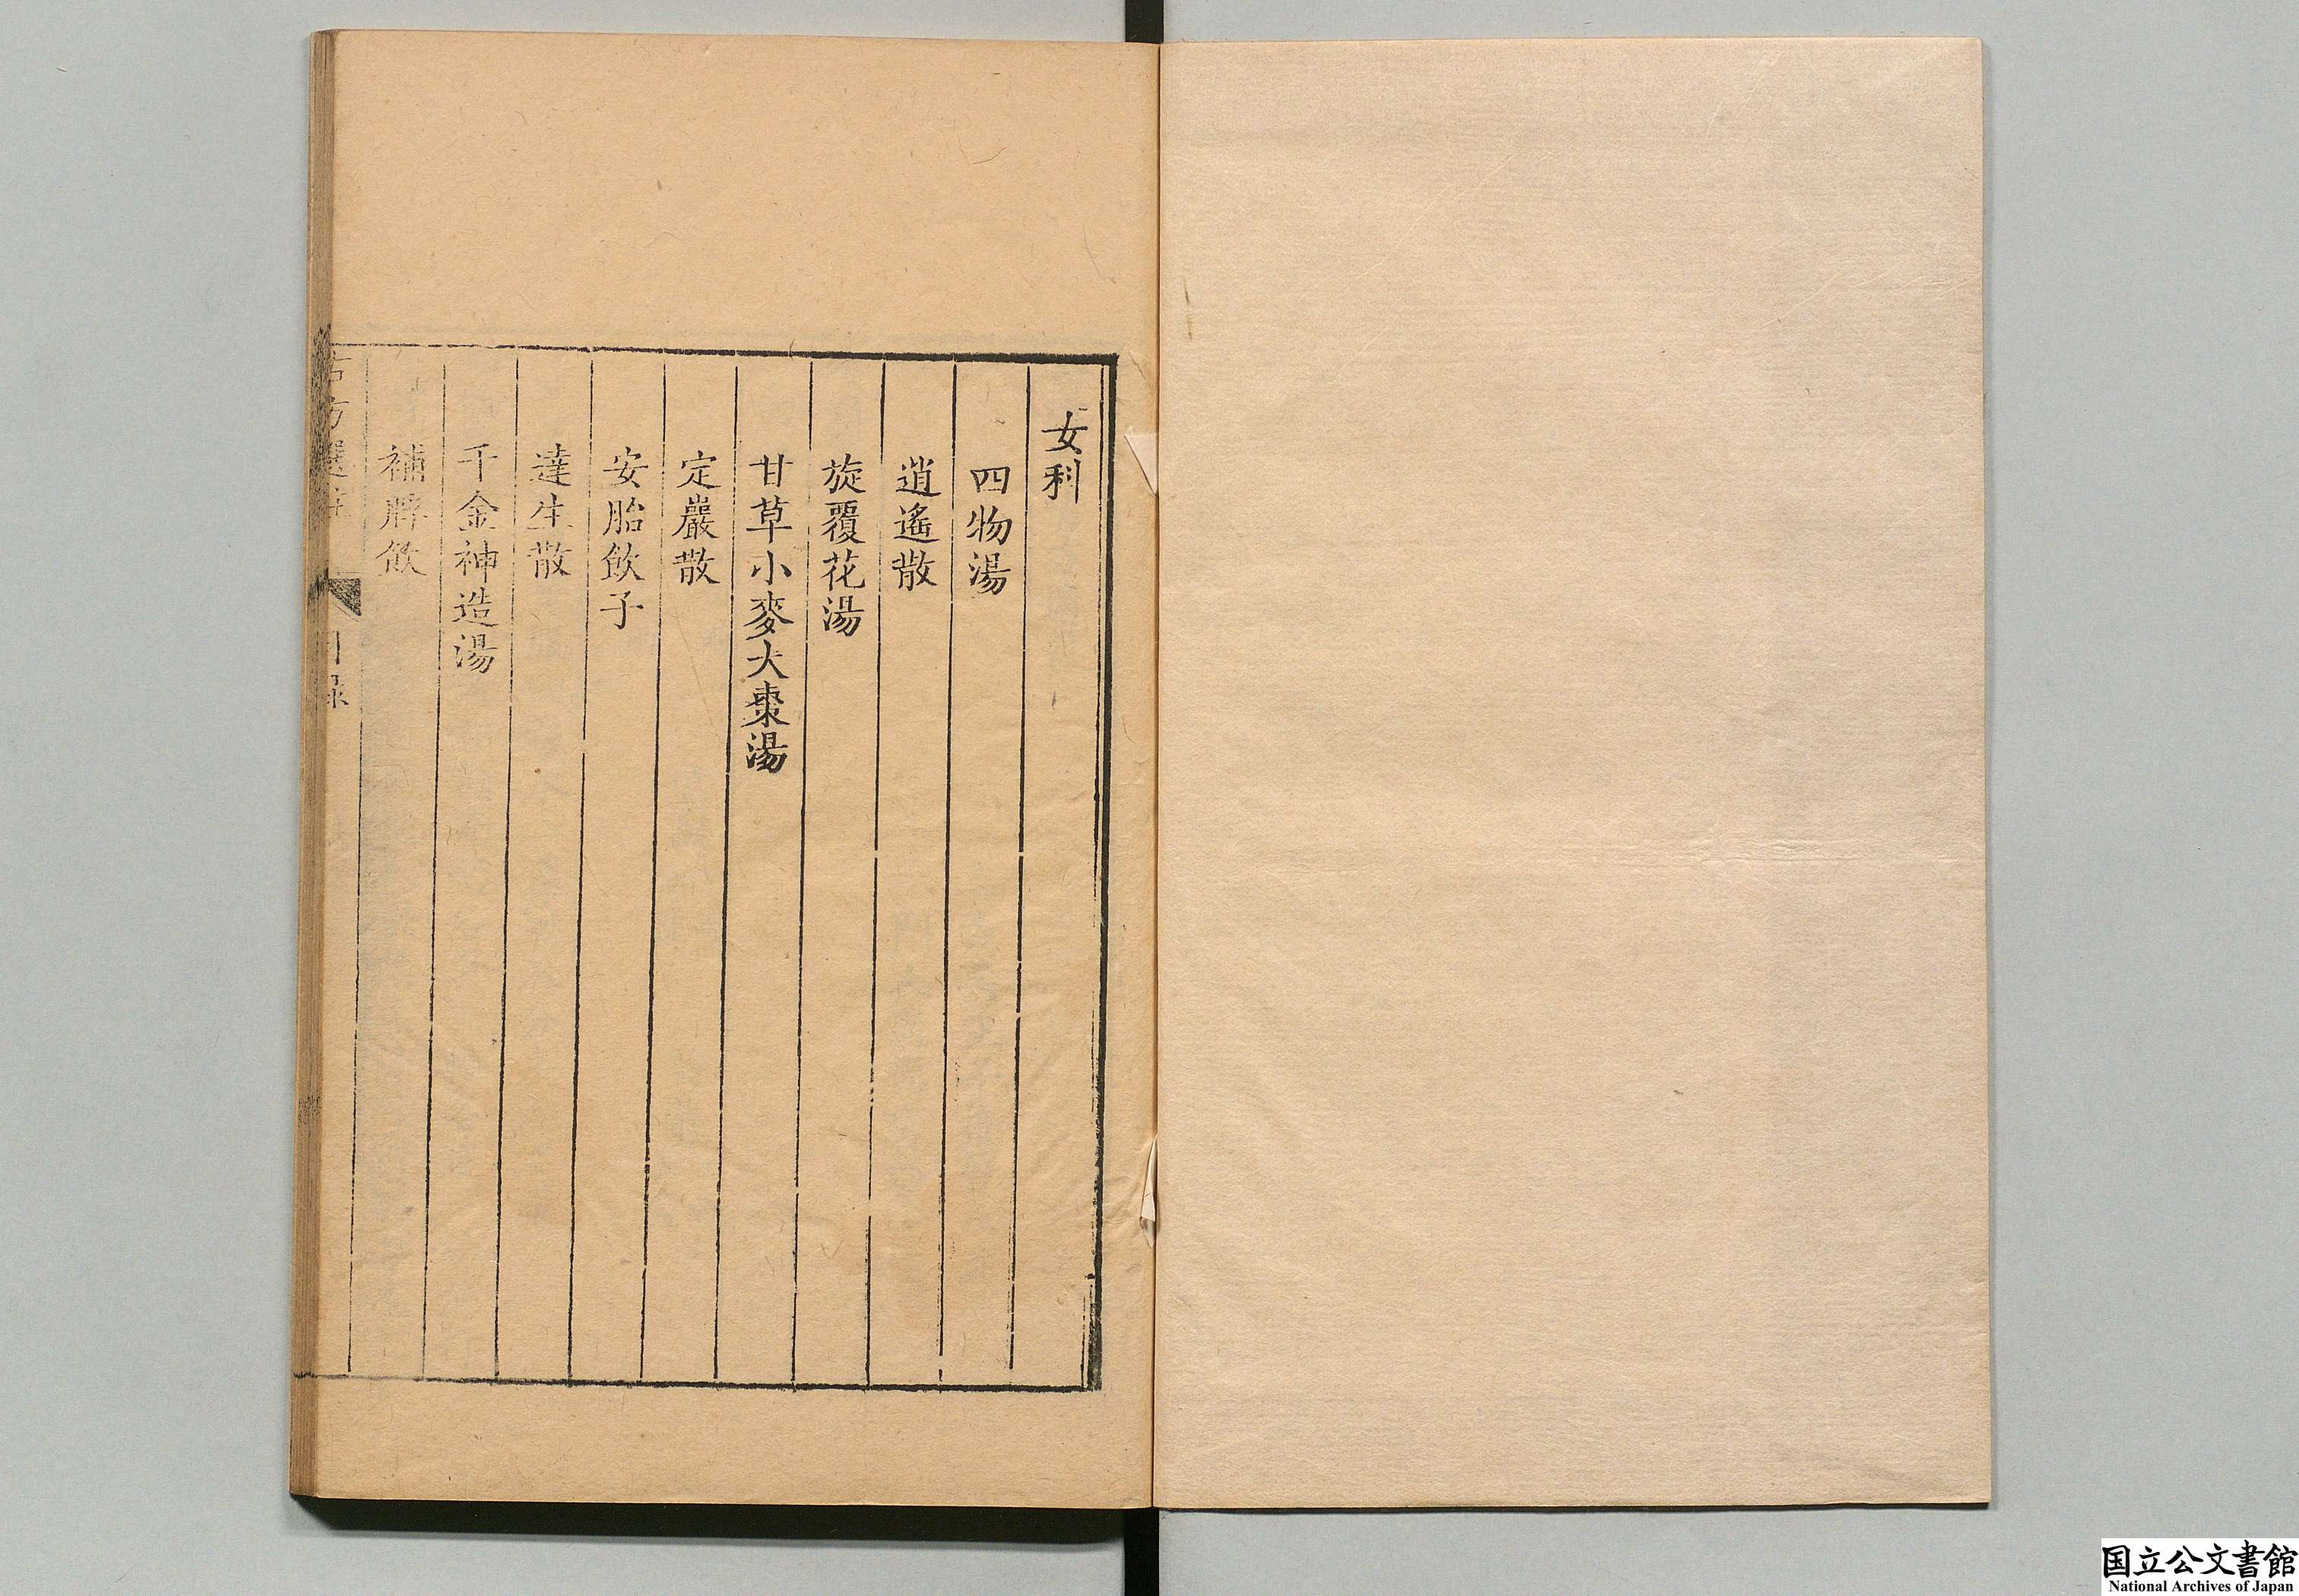 女科
四物湯
逍遙散
旋覆花湯
甘草小麥大棗湯
定嚴散
安胎飲子
達生散
千金神造湯
補脬飲
古方選註
目錄
国立公文書館
National Archives of Japan